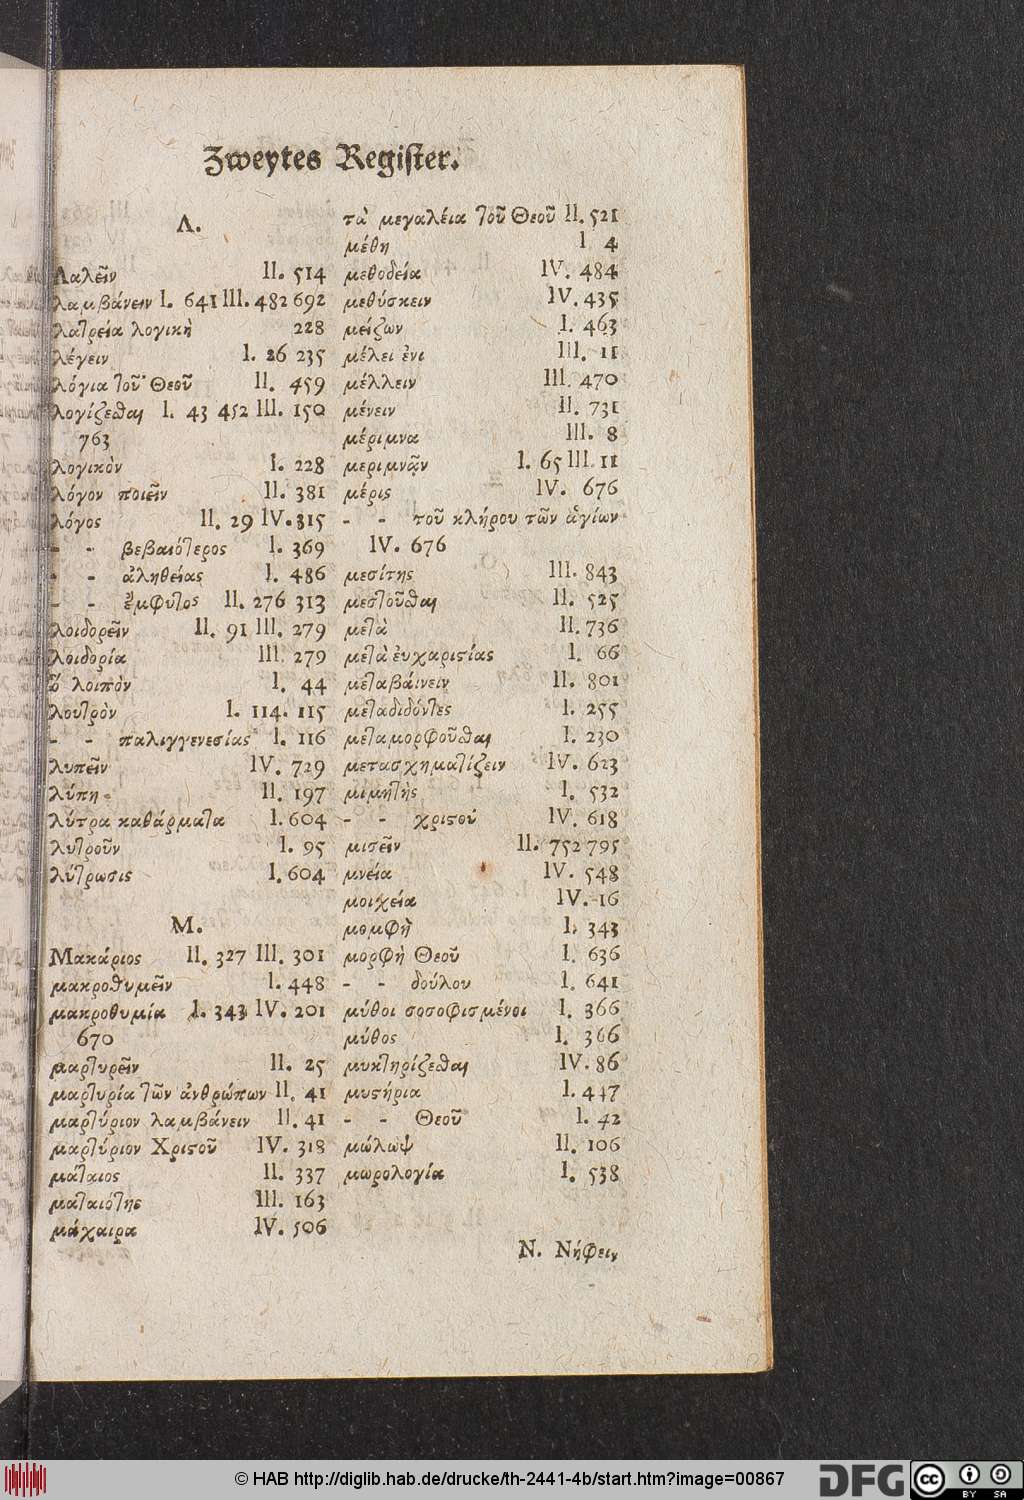 Zweytes Register.
Λ.
Λαλεῖν II. 514
λαμβάνειν I. 641 III. 482 692
λατρεία λογικὴ 228
λέγειν I. 26 235
λόγια τοῦ Θεοῦ II. 459
λογίζεσθαι I. 43 452 III. 150
763
λογικὸν I. 228
λόγον ποιεῖν II. 381
λόγος II. 29 IV. 315
- - βεβαιότερος I. 369
- - ἀληθείας I. 486
- - ἔμφυτος II. 276 313
λοιδορεῖν II. 91 III. 279
λοιδορία III. 279
ὃ λοιπὸν I. 44
λουτρὸν I. 114. 115
- - παλιγγενεσίας I. 116
λυπεῖν IV. 729
λύπη II. 197
λύτρα καθάρματα I. 604
λυτροῦν I. 95
λύτρωσις I. 604
Μ.
Μακάριος II. 327 III. 301
μακροθυμεῖν I. 448
μακροθυμία I. 343 IV. 201
670
μαρτυρεῖν II. 25
μαρτυρία τῶν ἀνθρώπων II. 41
μαρτύριον λαμβάνειν II. 41
μαρτύριον Χριστοῦ IV. 318
μάταιος II. 337
ματαιότης III. 163
μάχαιρα IV. 506
τὰ μεγαλέια τοῦ Θεοῦ II. 521
μέθη I. 4
μεθοδεία IV. 484
μεθύσκειν IV. 435
μείζων I. 463
μέλει ἐνι III. 11
μέλλειν III. 470
μένειν II. 731
μέριμνα III. 8
μεριμνᾷν I. 65 III. 11
μέρις IV. 676
- - τοῦ κλήρου τῶν ἁγίων
IV. 676
μεσίτης III. 843
μεστοῦσθαι II. 525
μετὰ II. 736
μετὰ ἐυχαριστίας I. 66
μεταβάινειν II. 801
μεταδιδόντες I. 255
μεταμορφοῦσθαι I. 230
μετασχηματίζειν IV. 623
μιμητὴς I. 532
- - χριστού IV. 618
μισεῖν II. 752 795
μνέία IV. 548
μοιχεία IV. 16
μομφὴ I. 343
μορφὴ Θεοῦ I. 636
- - δούλου I. 641
μύθοι σοσοφισμένοι I. 366
μύθος I. 366
μυκτηρίζεσθαι IV. 86
μυστήρια I. 447
- - Θεοῦ I. 42
μώλωψ II. 106
μωρολογία I. 538
N. Νήφειν
© HAB http://diglib.hab.de/drucke/th-2441-4b/start.htm?image=00867
DFG
cc BY SA